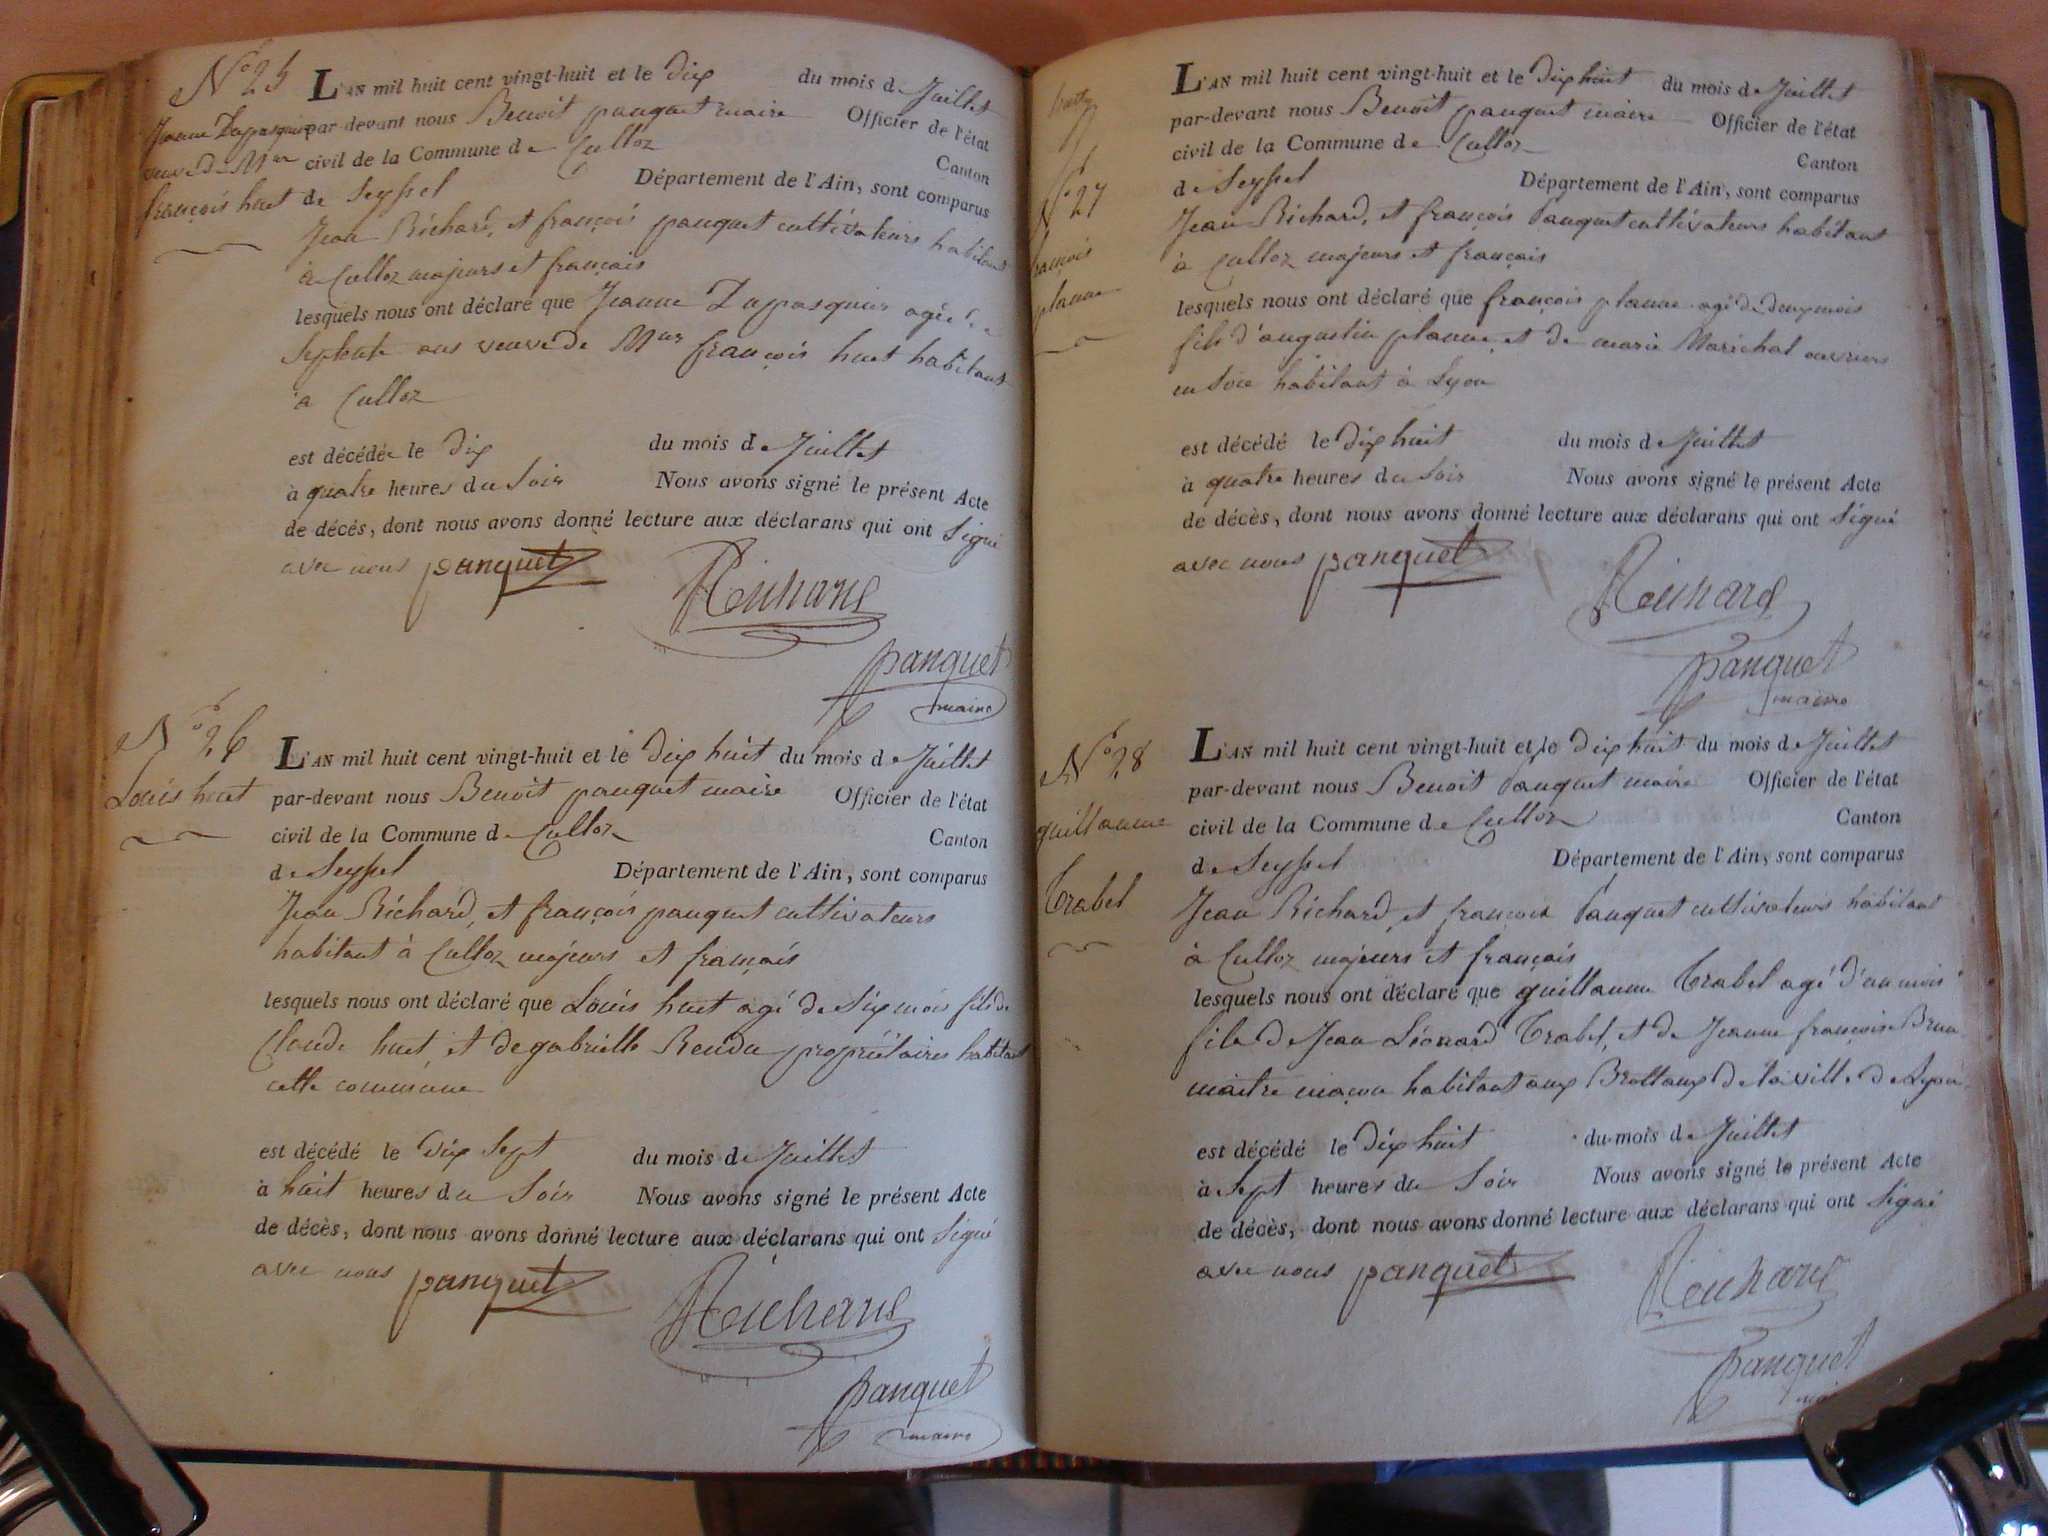 N° 25
Jeanne Dupasquier
veuve de Mur
françois huet
L'AN mil huit cent vingt-huit et le Dix du mois de Juillet
par-devant nous Benoit panquet maire Officier de l'état
civil de la Commune de Culloz Canton
de Seyssel Département de l'Ain, sont comparus
Jean Richard, et françois panquet cultivateurs habitant
à Culloz majeurs et français
lesquels nous ont déclaré que Jeanne Dupasquier agée de
Septente ans veuve de Mur françois huet habitant
à Culloz
est décédée le Dix du mois de Juillet
à quatre heures du Soir Nous avons signé le présent Acte
de décés, dont nous avons donné lecture aux déclarans qui ont Signé
avec nous panquet Richard
panquet
maire
N° 26
Louis huet
L'AN mil huit cent vingt-huit et le Dix huit du mois de Juillet
par-devant nous Benoit panquet maire Officier de l'état
civil de la Commune de Culloz Canton
de Seyssel Département de l'Ain, sont comparus
Jean Richard, et françois panquet cultivateurs
habitant à Culloz majeurs et français
lesquels nous ont déclaré que Louis huet agé de Six mois fils de
Claude huet, et de gabrielle Rendu propriétaires habitant
cette commune
est décédé le Dix Sept du mois de Juillet
à huit heures du Soir Nous avons signé le présent Acte
de décès, dont nous avons donné lecture aux déclarans qui ont Signé
avec nous panquet Richard
panquet
maire
N° 27
françois
planne
L'AN mil huit cent vingt-huit et le Dix huit du mois de Juillet
par-devant nous Benoit panquet maire Officier de l'état
civil de la Commune de Culloz Canton
de Seyssel Département de l'Ain, sont comparus
Jean Richard, et françois Panquet cultivateurs habitant
à Culloz majeurs et français
lesquels nous ont déclaré que françois planne agé de deux mois
fils d'augustin planne, et de marie Marichal ouvriers
en Soie habitant à Lyon
est décédé le Dix huit du mois de Juillet
à quatre heures du Soir Nous avons signé le présent Acte
de décès, dont nous avons donné lecture aux déclarans qui ont Signé
avec nous panquet Richard
panquet
maire
N° 28
guillaume
Trabel
L'AN mil huit cent vingt-huit et le Dix huit du mois de Juillet
par-devant nous Benoit Panquet maire Officier de l'état
civil de la Commune de Culloz Canton
de Seyssel Département de l'Ain, sont comparus
Jean Richard, et françois Panquet cultivateurs habitant
à Culloz majeurs et français
lesquels nous ont déclaré que guillaume Trabel agé d'un mois
fils de Jean Léonard Trabel, et de Jeanne françoise Brun
maitre maçon habitant aux Brottaux de la ville de Lyon
est décédé le Dix huit du mois de Juillet
à Sept heures du Soir Nous avons signé le présent Acte
de décès, dont nous avons donné lecture aux déclarans qui ont Signé
avec nous panquet Richard
panquet